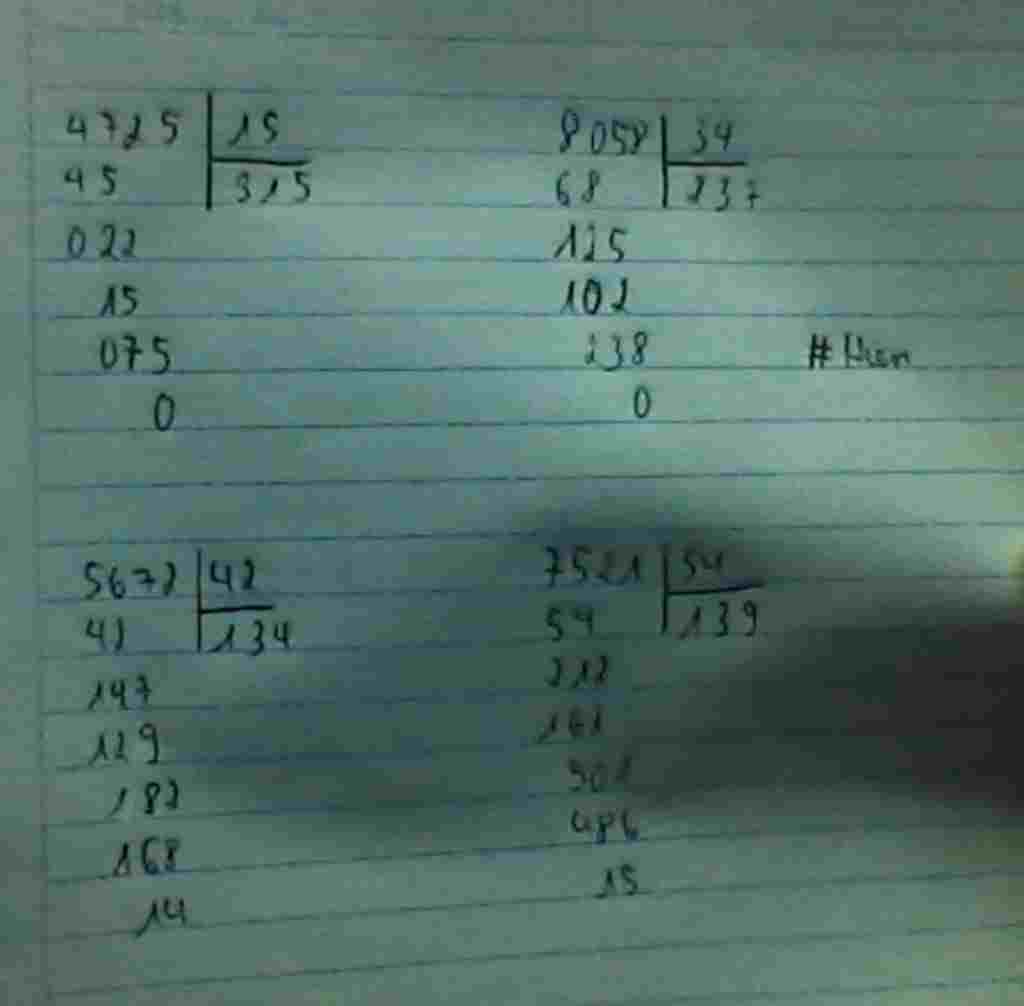 4725 15
45 315
022
15
075
0
8058 34
68 237
125
102
238
0
#Hien
5672 42
42 134
147
129
182
168
14
7521 54
54 139
212
161
501
486
15